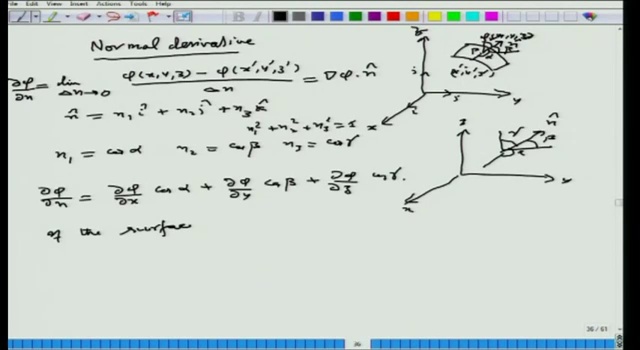 File Edit View Insert Actions Tools Help
Normal derivative
∂φ/∂n = lim Δn→0 (φ(x,y,z) - φ(x',y',z'))/Δn = ∇φ·n̂
n̂ = n₁ î + n₂ ĵ + n₃ k̂
n₁² + n₂² + n₃² = 1
n₁ = cos α n₂ = cos β n₃ = cos γ
∂φ/∂n = ∂φ/∂x cos α + ∂φ/∂y cos β + ∂φ/∂z cos γ.
of the surface
z
y
x
φ(x,y,z)
(x',y',z')
z
n̂
γ
β
α
y
x
36 / 61
36